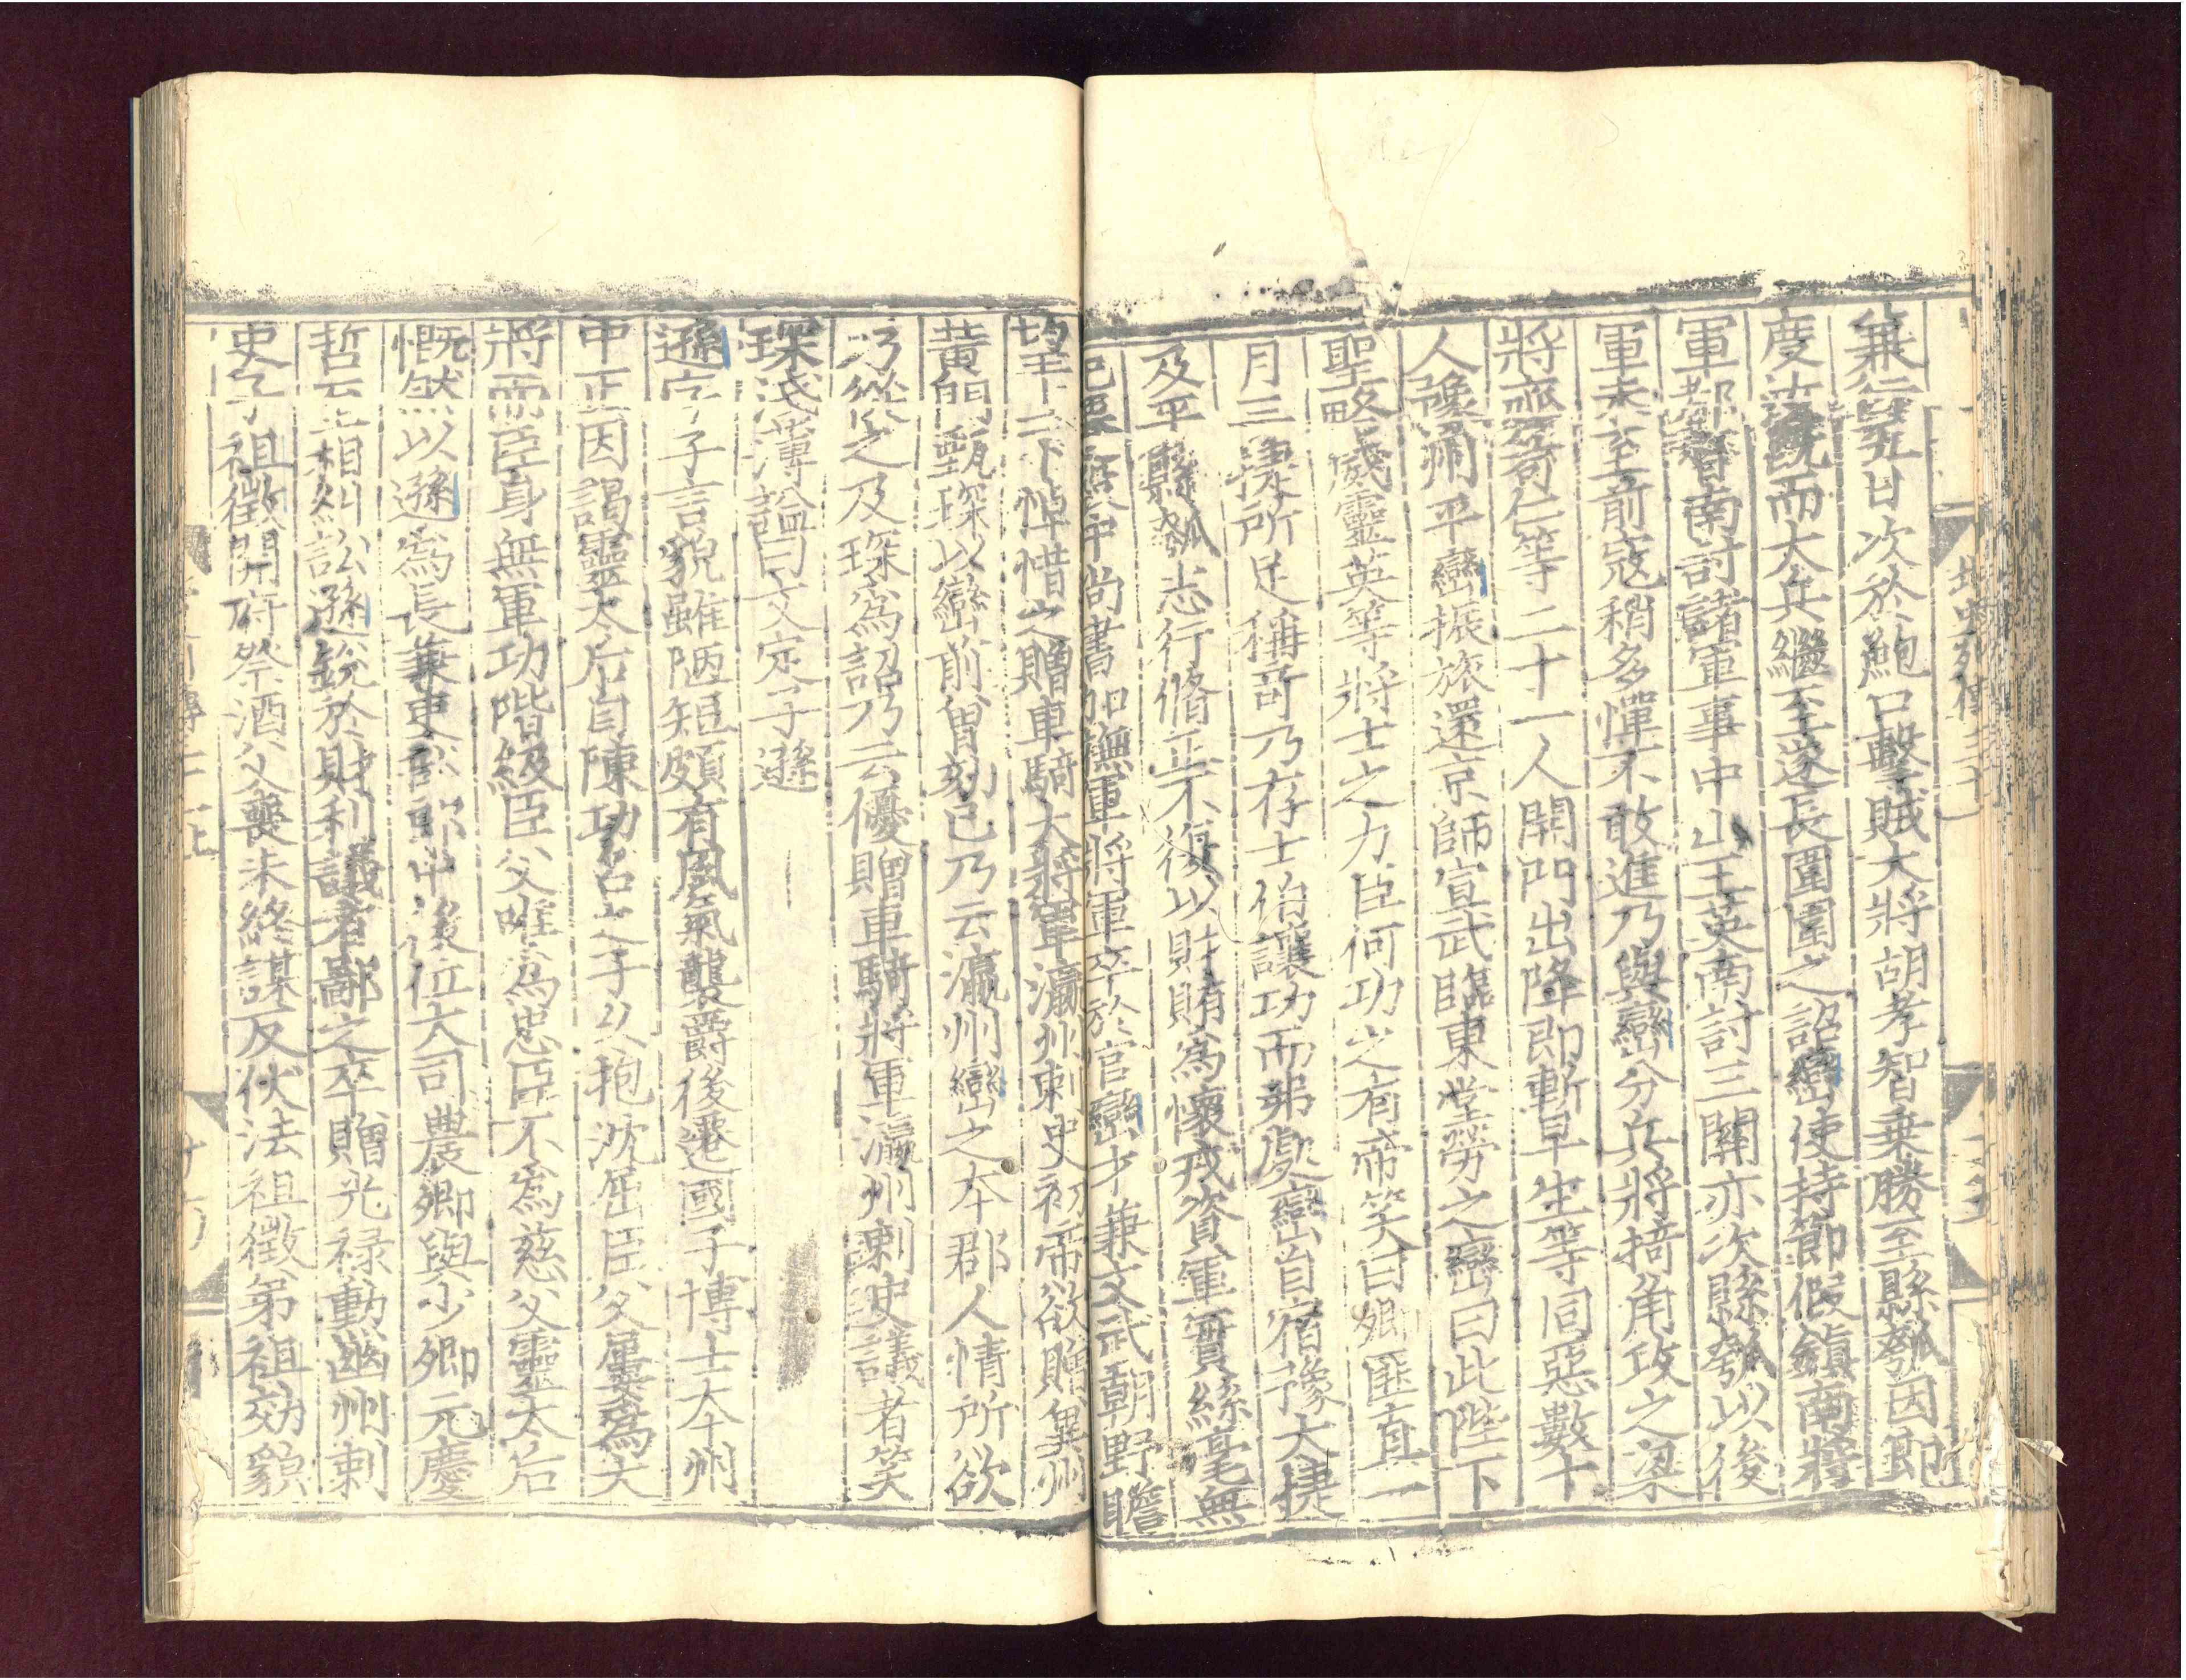 兼行翌廿次於鮑口擊賊大將胡孝智乗勝至縣瓠因即
度汝既而大兵繼至遂長圍圍之詔巒使持節假鎮南將
軍都督南討諸軍事中山王英南討三關亦次縣瓠以後
軍未至前寇稍多憚不敢進乃與巒分兵將掎角攻之梁
將齊苟仁等二十一人開門出降即斬早生等同惡數十
人豫州平巒振旅還京師宣武臨東堂勞之巒曰此陛下
聖略威靈英等將士之力臣何功之有帝笑曰卿匪直一
月三捷所足稱奇乃存士伯讓功而弗處巒自宿豫大捷
及平縣瓠志行脩正不復以財賄為懷戎資軍實絲毫無
犯遷殿中尚書加撫軍將軍卒於官巒才兼文武朝野瞻
望上下悼惜之贈車騎大將軍瀛州刺史初帝欲贈兾州
黄門甄琛以巒前曾刻己乃云瀛州巒之本郡人情所欲
乃從之及琛為詔乃云優贈車騎將軍瀛州刺史議者笑
琛淺薄謚曰文定子遜
遜字子言貌雖陋短頗有風氣襲爵後遷國子博士本州
中正因謁靈太后自陳功名之子久抱沈屈臣父屢為大
將而臣身無軍功階級臣父唯為忠臣不為慈父靈太后
慨然以遜為長兼吏部郎中後位大司農卿與少卿元慶
哲云相糾訟遜銳於財利議者鄙之卒贈光禄勳幽州刺
史子祖徵開府祭酒父喪未終謀反伏法祖徵弟祖効貌